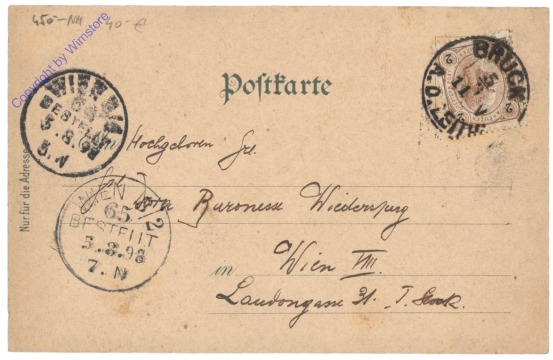 450-NH 40-€
Copyright by Winstore
Postkarte
BRUCK
A. D. LEITHA
2
2
WIEN
65
BESTELLT
5.8.98
5.N
WIEN
65
BESTELLT
5.8.98
7.N
2
Nur für die Adresse
Hochgeboren Frl.
Baronesse
in Wien VIII.
Laudongasse 31. I. Stock.